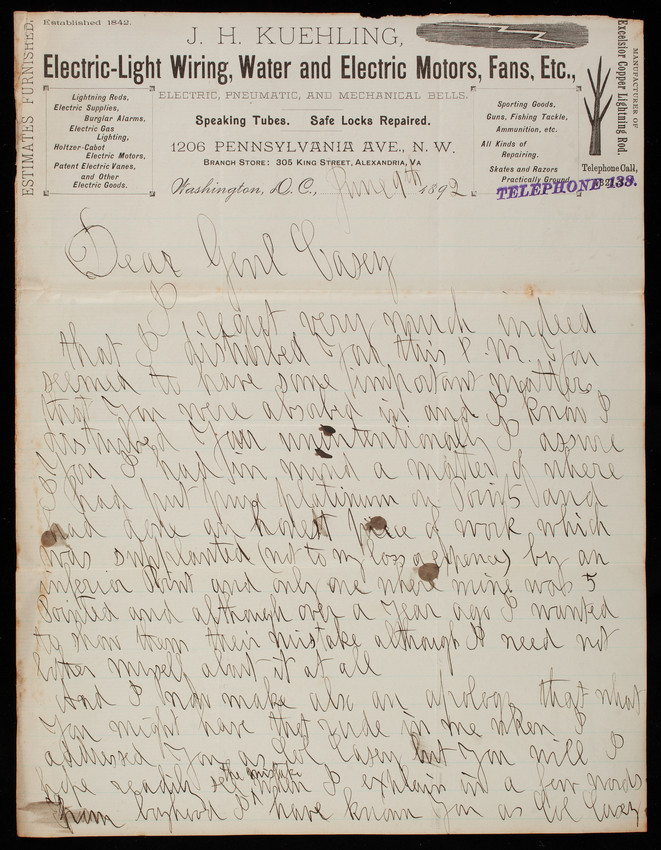 Established 1842.
ESTIMATES FURNISHED.
J. H. KUEHLING,
Electric-Light Wiring, Water and Electric Motors, Fans, Etc.,
MANUFACTURER OF
Excelsior Copper Lightning Rod.
Lightning Rods,
Electric Supplies,
Burglar Alarms,
Electric Gas
Lighting,
Holtzer-Cabot
Electric Motors,
Patent Electric Vanes,
and Other
Electric Goods.
ELECTRIC, PNEUMATIC, AND MECHANICAL BELLS,
Speaking Tubes. Safe Locks Repaired.
1206 PENNSYLVANIA AVE., N. W.
BRANCH STORE: 305 KING STREET, ALEXANDRIA, VA
Sporting Goods,
Guns, Fishing Tackle,
Ammunition, etc.
All Kinds of
Repairing.
Skates and Razors
Practically Ground
Telephone Call,
TELEPHONE 139.
Washington, D. C., June 9th 1892
Dear Genl Casey
I regret very much indeed
that I disturbed you this P.M. You
seemed to have some important matters
that you were absorbed in and I know I
disturbed you unintentionally I assure
you I had in mind a matter of where
I had put pure platinum on Points and
had done an honest piece of work which
was supplanted (not to my loss or expence) by an
inferior Point and only one where mine was 5
Pointed and although over a year ago I wanted
to show them their mistake although I need not
bother myself about it at all
And I now make also an apology that what
you might have thot rude in me when I
addressed you as Col Casey but you will I
hope readily see the mistake when I explain in a few words
from boyhood I have known you as Col Casey